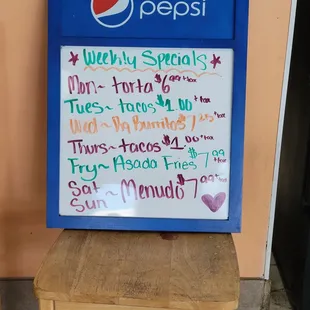 pepsi
Weekly Specials
Mon~ torta $6.99 + tax
Tues~ tacos $1.00 + tax
Wed~ Burritos $7 + tax
Thurs~ tacos $1.00 + tax
Fry~ Asada Fries $7.99 + tax
Sat~ Menudo $7.99 + tax
Sun